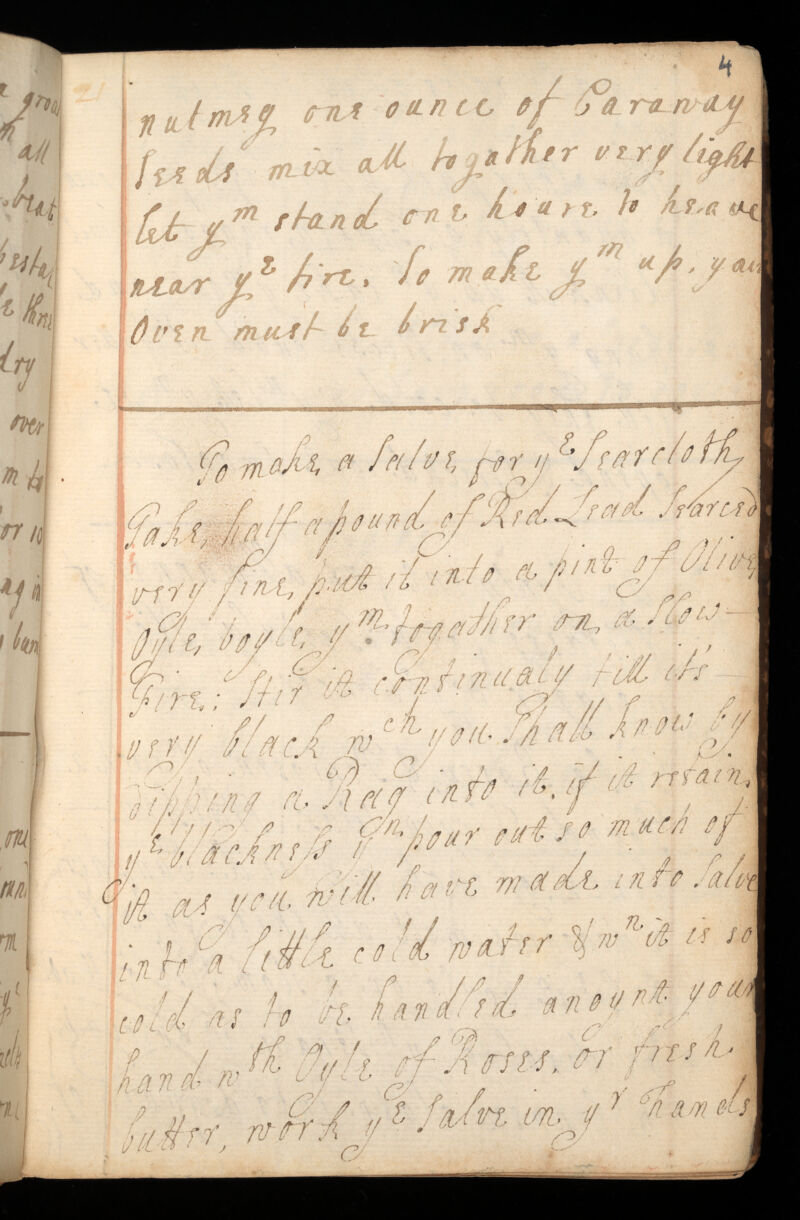 4
21
nutmeg one ounce of Caraway
seeds mix all togather very light
let y^m stand one houre to heave
near y^e fire. So make y^m up, your
Oven must be brisk
To make a Salve for y^e Searcloth
Take half a pound of Red Lead Searced
very fine, put it into a pint of Olive
Oyle, boyle y^m togather on a Slow
Fire: Stir it continualy till it's
very black w^ch you Shall know by
dipping a Rag into it, if it retain
y^e blackness y^n pour out so much of
it as you will have made into Salve
into a little cold water & w^n it is so
cold as to be handled anoynt your
hand w^th Oyle of Roses, or fresh
butter, work y^e Salve in y^r hands
all
beat
dry
over
m to
or
in
one